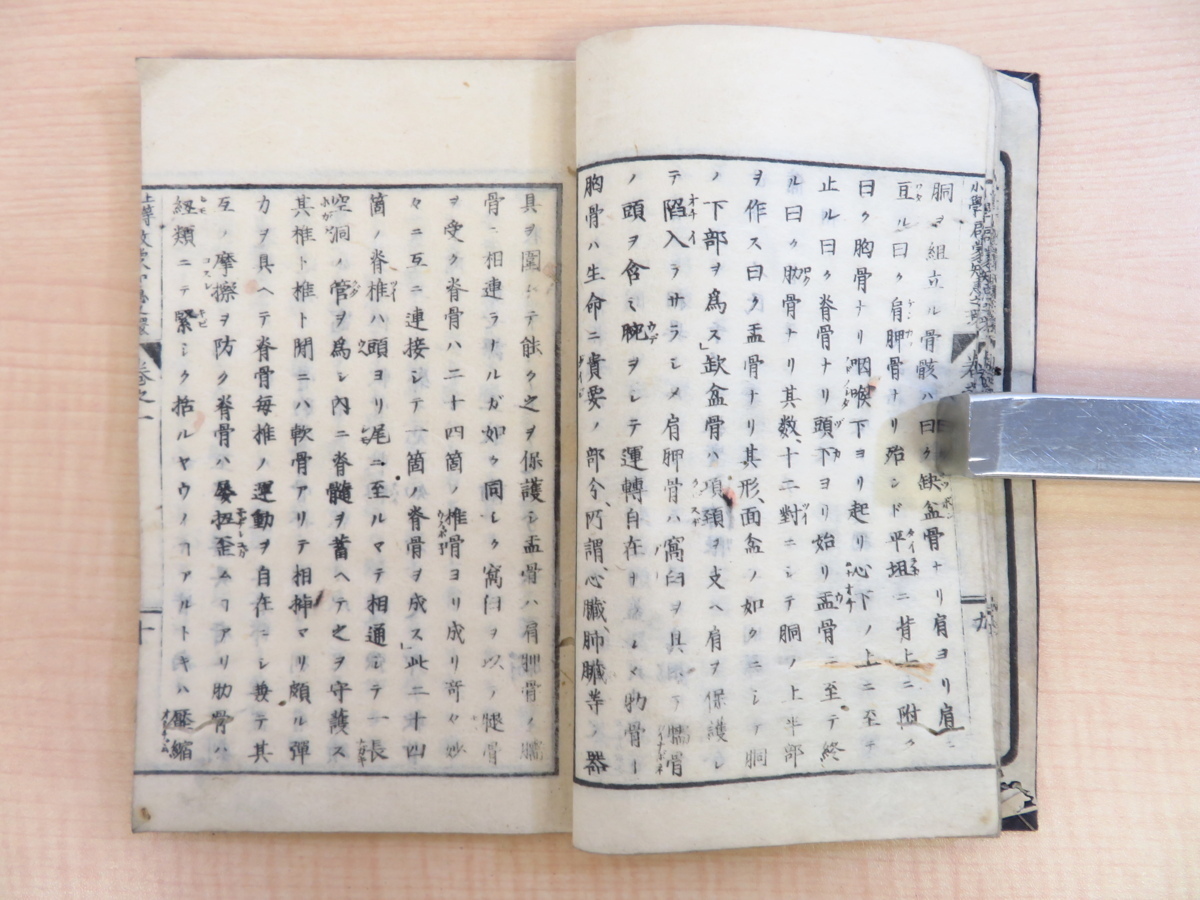 胴ヲ組立ル骨骸ハ曰ク缺盆骨ナリ肩ヨリ肩ニ
亙ル曰ク肩胛骨ナリ殆ンド平坦ニ背上ニ附ク
曰ク胸骨ナリ咽喉下ヨリ起リ心下ノ上ニ至テ
止ル曰ク脊骨ナリ頭下ヨリ始リ盂骨ニ至テ終
ル曰ク肋骨ナリ其数十二對ニシテ胴ノ上半部
ヲ作ス曰ク盂骨ナリ其形面盆ノ如クニシテ胴
ノ下部ヲ爲ス」缺盆骨ハ項頚ヲ支ヘ肩ヲ保護シ
テ陷入ラサラシメ肩胛骨ハ窩臼ヲ具ヘテ臑骨
ノ頭ヲ含ミ腕ヲシテ運轉自在ヲ シメ物骨
胸骨ハ生命ニ貴要ノ部分所謂心臓肺臓等ノ器
具ヲ圍ンデ能ク之ヲ保護シ盂骨ハ肩胛骨ノ臑
骨ニ相連ラナルガ如ク同シク窩臼ヲ以ノ腿骨
ヲ受ク脊骨ハ二十四箇ノ椎骨ヨリ成リ竒々妙
々ニ互ニ連接シテ一箇ノ脊骨ヲ成ス」此二十四
箇ノ脊椎ハ頭ヨリ尾ニ至ルマテ相通シテ一長
空洞ノ管ヲ爲シ内ニ脊髓ヲ蓄ヘテ之ヲ守護ス
其椎ト椎ト間ニハ軟骨アリテ相挿マリ頗ル彈
力ヲ具ヘテ脊骨毎椎ノ運動ヲ自在ニシ兼テ其
互ノ摩擦ヲ防ク脊骨ハ屡扭歪ムヿアリ肋骨ハ
紐類ニテ緊シク括ルヤウノヿアルトキハ壓縮